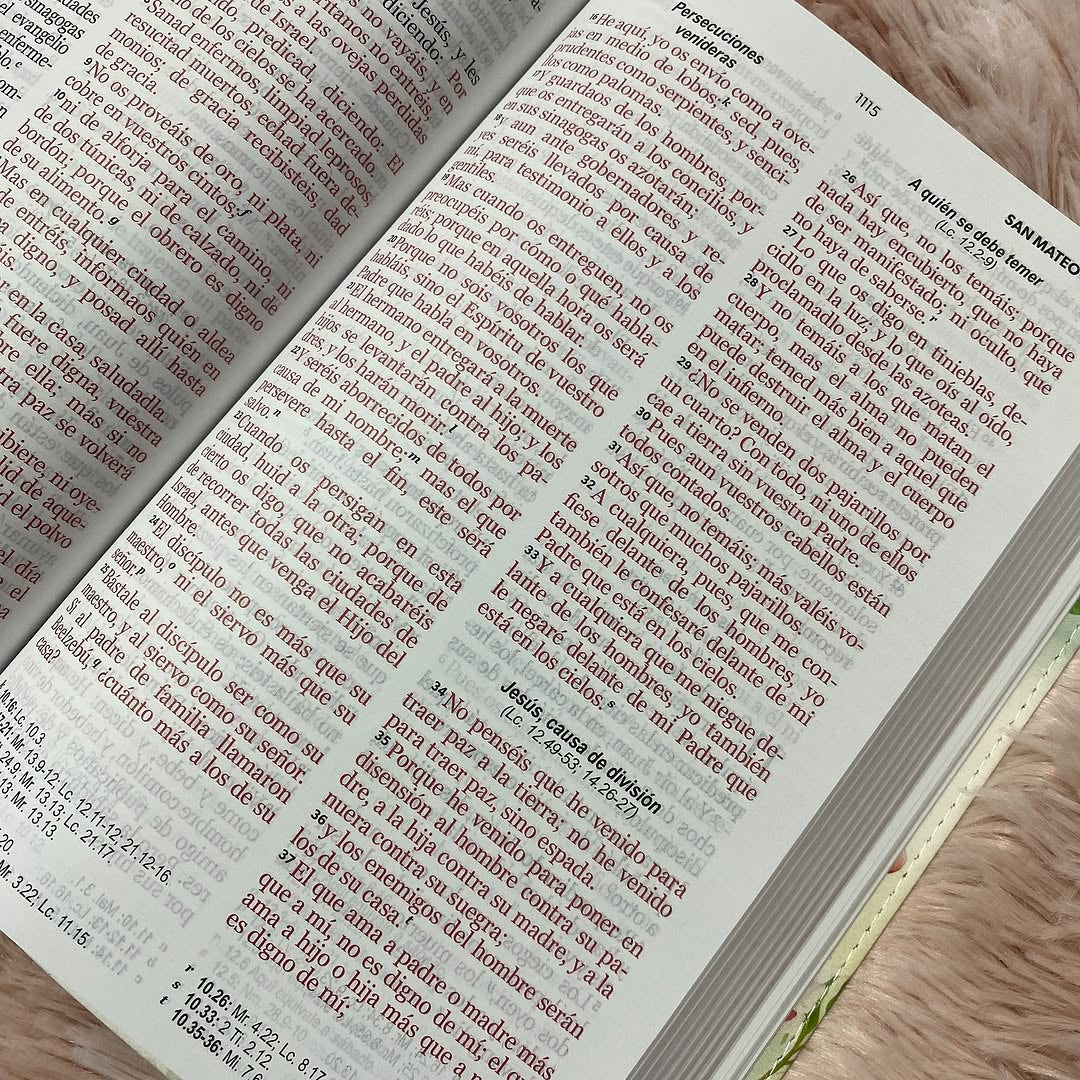 sinagogas
el evangelio
enferme-
Jesús, y les
diciendo: Por
vayáis, y en
no entréis,
ovejas perdidas
de Israel.
diciendo: El
de los cielos se ha acercado.
Sanad enfermos, limpiad leprosos,
resucitad muertos, echad fuera de-
monios; de gracia recibisteis, dad
de gracia.
9 No os proveáis de oro, ni plata, ni
cobre en vuestros cintos; f
10 ni de alforja para el camino, ni
de dos túnicas, ni de calzado, ni de
bordón; porque el obrero es digno
de su alimento. g
Mas en cualquier ciudad o aldea
de entréis, informaos quién en
digno, y posad allí hasta
en la casa, saludadla.
fuere digna, vuestra
ella; mas si no
paz se volverá
ni oye-
de aque-
el polvo
el día
Persecuciones
venideras
16 He aquí, yo os envío como a ove-
jas en medio de lobos; k sed, pues,
prudentes como serpientes, y senci-
llos como palomas.
17 Y guardaos de los hombres, por-
que os entregarán a los concilios, y
en sus sinagogas os azotarán;
18 y aun ante gobernadores y re-
yes seréis llevados por causa de
mí, para testimonio a ellos y a los
gentiles.
19 Mas cuando os entreguen, no os
preocupéis por cómo o qué habla-
réis; porque en aquella hora os será
dado lo que habéis de hablar.
20 Porque no sois vosotros los que
habláis, sino el Espíritu de vuestro
Padre que habla en vosotros.
21 El hermano entregará a la muerte
al hermano, y el padre al hijo; y los
hijos se levantarán contra los pa-
dres, y los harán morir. l
22 Y seréis aborrecidos de todos por
causa de mi nombre; m mas el que
persevere hasta el fin, este será
salvo. n
23 Cuando os persigan en esta
ciudad, huid a la otra; porque de
cierto os digo, que no acabaréis
de recorrer todas las ciudades de
Israel, antes que venga el Hijo del
Hombre.
24 El discípulo no es más que su
maestro, o ni el siervo más que su
señor. p
25 Bástale al discípulo ser como su
maestro, y al siervo como su señor.
Si al padre de familia llamaron
Beelzebú, q ¿cuánto más a los de su
casa?
10.16: Lc. 10.3.
17-21: Mr. 13.9-12; Lc. 12.11-12; 21.12-16.
24.9; Mr. 13.13; Lc. 21.17.
13; Mr. 13.13.
20.
Mr. 3.22; Lc. 11.15.
1115
SAN MATEO
A quién se debe temer
(Lc. 12.2-9)
26 Así que, no los temáis; porque
nada hay encubierto, que no haya
de ser manifestado; ni oculto, que
no haya de saberse. r
27 Lo que os digo en tinieblas, de-
cidlo en la luz; y lo que oís al oído,
proclamadlo desde las azoteas.
28 Y no temáis a los que matan el
cuerpo, mas el alma no pueden
matar; temed más bien a aquel que
puede destruir el alma y el cuerpo
en el infierno.
29 ¿No se venden dos pajarillos por
un cuarto? Con todo, ni uno de ellos
cae a tierra sin vuestro Padre.
30 Pues aun vuestros cabellos están
todos contados.
31 Así que, no temáis; más valéis vo-
sotros que muchos pajarillos.
32 A cualquiera, pues, que me con-
fiese delante de los hombres, yo
también le confesaré delante de mi
Padre que está en los cielos.
33 Y a cualquiera que me niegue de-
lante de los hombres, yo también
le negaré delante de mi Padre que
está en los cielos. s
Jesús, causa de división
(Lc. 12.49-53; 14.26-27)
34 No penséis que he venido para
traer paz a la tierra; no he venido
para traer paz, sino espada.
35 Porque he venido para poner en
disensión al hombre contra su pa-
dre, a la hija contra su madre, y a la
nuera contra su suegra;
36 y los enemigos del hombre serán
los de su casa. t
37 El que ama a padre o madre más
que a mí, no es digno de mí; el que
ama a hijo o hija más que a
es digno de mí;
r 10.26: Mr. 4.22; Lc. 8.17.
s 10.33: 2 Ti. 2.12.
t 10.35-36: Mi. 7.6